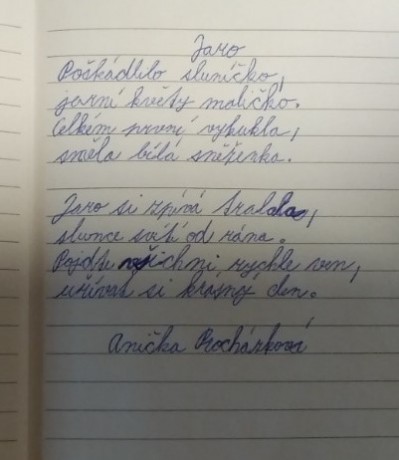 Jaro
Poškádlilo sluníčko,
jarní květy maličko.
Celkém první vykukla,
směla bílá sněženka.
Jaro si zpívá tralala,
slunce svítí od rána.
Pojďte všichni rychle ven,
užívat si krásný den.
Anička Procházková